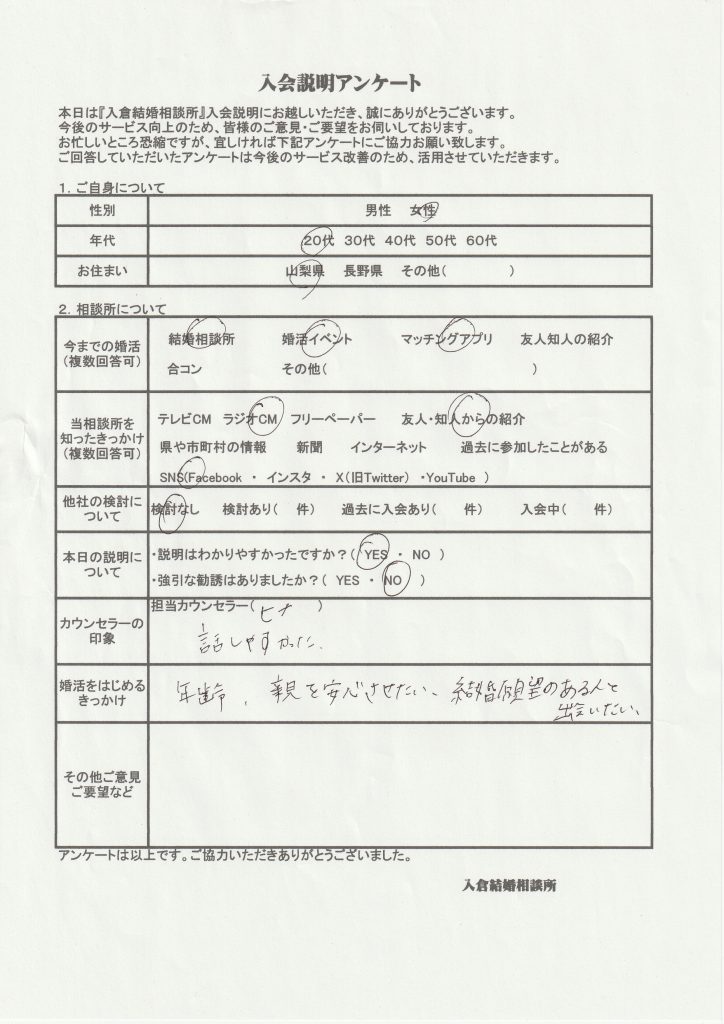 入会説明アンケート
本日は『入倉結婚相談所』入会説明にお越しいただき、誠にありがとうございます。
今後のサービス向上のため、皆様のご意見・ご要望をお伺いしております。
お忙しいところ恐縮ですが、宜しければ下記アンケートにご協力お願い致します。
ご回答していただいたアンケートは今後のサービス改善のため、活用させていただきます。
1. ご自身について
性別 男性 女性
年代 20代 30代 40代 50代 60代
お住まい 山梨県 長野県 その他( )
2. 相談所について
今までの婚活
(複数回答可)
結婚相談所 婚活イベント マッチングアプリ 友人知人の紹介
合コン その他( )
当相談所を
知ったきっかけ
(複数回答可)
テレビCM ラジオCM フリーペーパー 友人・知人からの紹介
県や市町村の情報 新聞 インターネット 過去に参加したことがある
SNS(Facebook ・ インスタ ・ X(旧Twitter) ・YouTube )
他社の検討に
ついて
検討なし 検討あり( 件) 過去に入会あり( 件) 入会中( 件)
本日の説明に
ついて
・説明はわかりやすかったですか？( YES ・ NO )
・強引な勧誘はありましたか？( YES ・ NO )
カウンセラーの
印象
担当カウンセラー( ヒナ )
話しやすかった.
婚活をはじめる
きっかけ
年齢、親を安心させたい、結婚願望のある人と
出会いたい、
その他ご意見
ご要望など
アンケートは以上です。ご協力いただきありがとうございました。
入倉結婚相談所